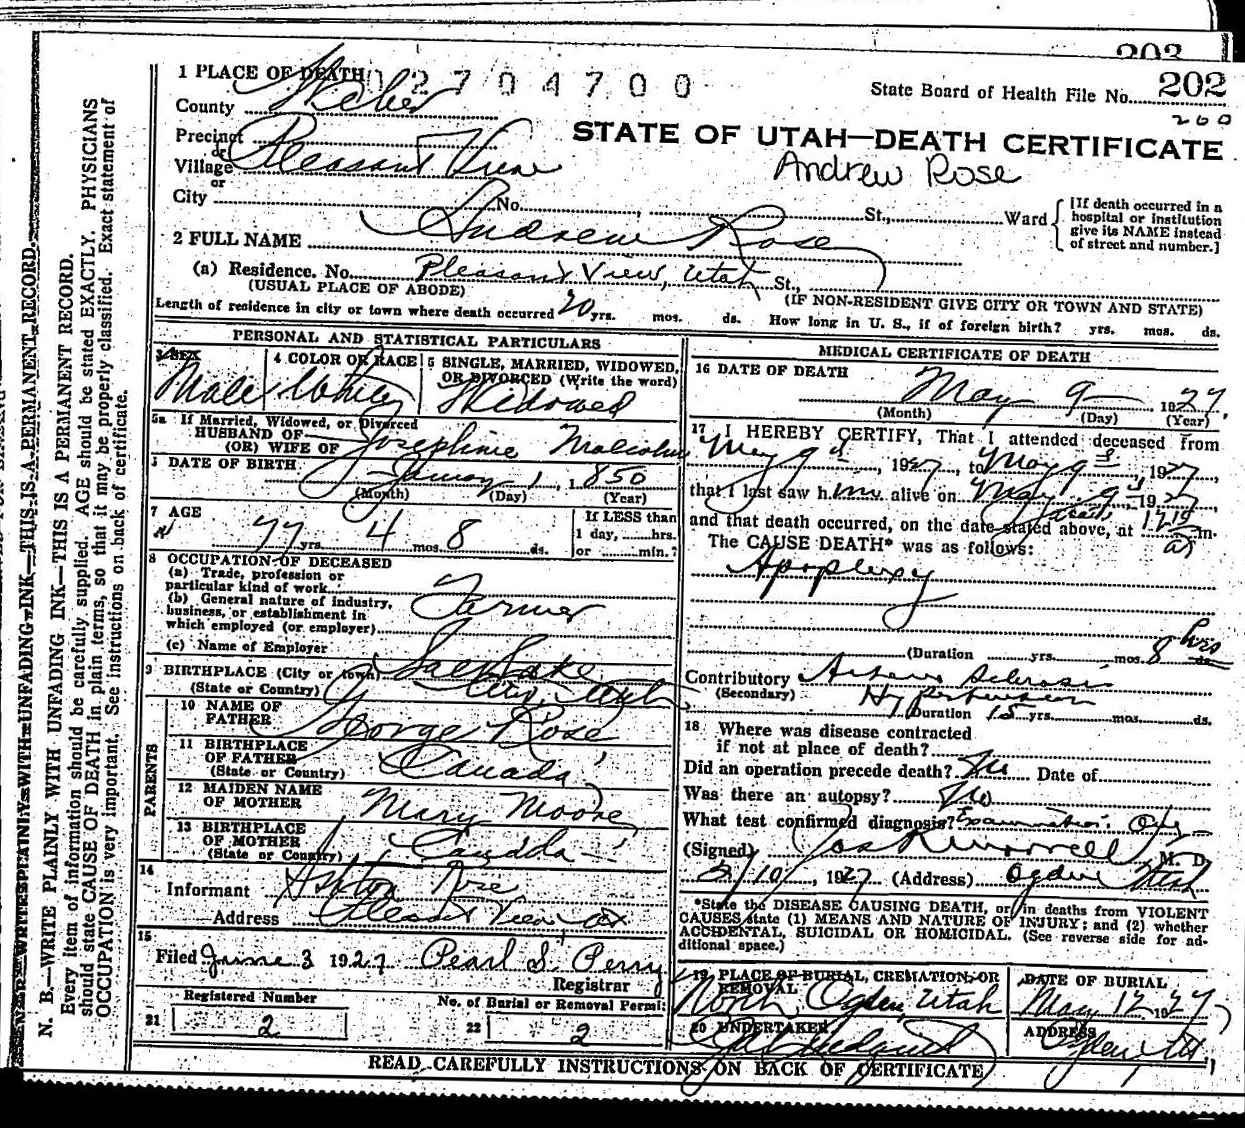 203
1 PLACE OF DEATH 02704700
State Board of Health File No. 202
County Weber
260
STATE OF UTAH—DEATH CERTIFICATE
Precinct or Village Pleasant View
Andrew Rose
or
City No. St., Ward
[If death occurred in a hospital or institution give its NAME instead of street and number.]
2 FULL NAME Andrew Rose
(a) Residence. No. Pleasant View, Utah St.,
(USUAL PLACE OF ABODE)
(IF NON-RESIDENT GIVE CITY OR TOWN AND STATE)
Length of residence in city or town where death occurred 20 yrs. mos. ds. How long in U. S., if of foreign birth? yrs. mos. ds.
PERSONAL AND STATISTICAL PARTICULARS
3 SEX Male
4 COLOR OR RACE White
5 SINGLE, MARRIED, WIDOWED, OR DIVORCED (Write the word) Widowed
5a If Married, Widowed, or Divorced
HUSBAND OF
(OR) WIFE OF Josephine Malcolm
DATE OF BIRTH January 1, 1850
(Month) (Day) (Year)
7 AGE 77 yrs. 4 mos. 8 ds.
If LESS than
1 day, hrs.
or min.?
8 OCCUPATION OF DECEASED
(a) Trade, profession or
particular kind of work
(b) General nature of industry,
business, or establishment in
which employed (or employer)
Farmer
(c) Name of Employer
9 BIRTHPLACE (City or town) Salt Lake
(State or Country) City, Utah
PARENTS
10 NAME OF FATHER George Rose
11 BIRTHPLACE OF FATHER
(State or Country) Canada
12 MAIDEN NAME OF MOTHER Mary Moore
13 BIRTHPLACE OF MOTHER
(State or Country) Canada
14
Informant Ashton Rose
Address Pleasant View
15
Filed June 3 1927 Pearl S. Perry
Registrar
Registered Number
21 2
No. of Burial or Removal Permit
22 2
MEDICAL CERTIFICATE OF DEATH
16 DATE OF DEATH May 9 1927
(Month) (Day) (Year)
17 I HEREBY CERTIFY, That I attended deceased from
May 9th, 1927, to May 9th, 1927
that I last saw him alive on May 9th 1927
and that death occurred, on the date stated above, at m.
The CAUSE DEATH* was as follows:
Apoplexy
(Duration yrs. mos. 8 ds. hrs
Contributory Arterio Sclerosis
(Secondary) Hypertension
(Duration 15 yrs. mos. ds.
18 Where was disease contracted
if not at place of death?
Did an operation precede death? No Date of
Was there an autopsy? No
What test confirmed diagnosis? Examination
(Signed) M. D.
5/10, 1927 (Address) Ogden Utah
*State the DISEASE CAUSING DEATH, or in deaths from VIOLENT
CAUSES state (1) MEANS AND NATURE OF INJURY; and (2) whether
ACCIDENTAL, SUICIDAL OR HOMICIDAL. (See reverse side for ad-
ditional space.)
19 PLACE OF BURIAL, CREMATION, OR REMOVAL
North Ogden Utah
DATE OF BURIAL
May 12 1927
20 UNDERTAKER
ADDRESS
Ogden Ut
READ CAREFULLY INSTRUCTIONS ON BACK OF CERTIFICATE
N. B.—WRITE PLAINLY WITH UNFADING INK—THIS IS A PERMANENT RECORD.
Every item of information should be carefully supplied. AGE should be stated EXACTLY. PHYSICIANS
should state CAUSE OF DEATH in plain terms, so that it may be properly classified. Exact statement of
OCCUPATION is very important. See instructions on back of certificate.